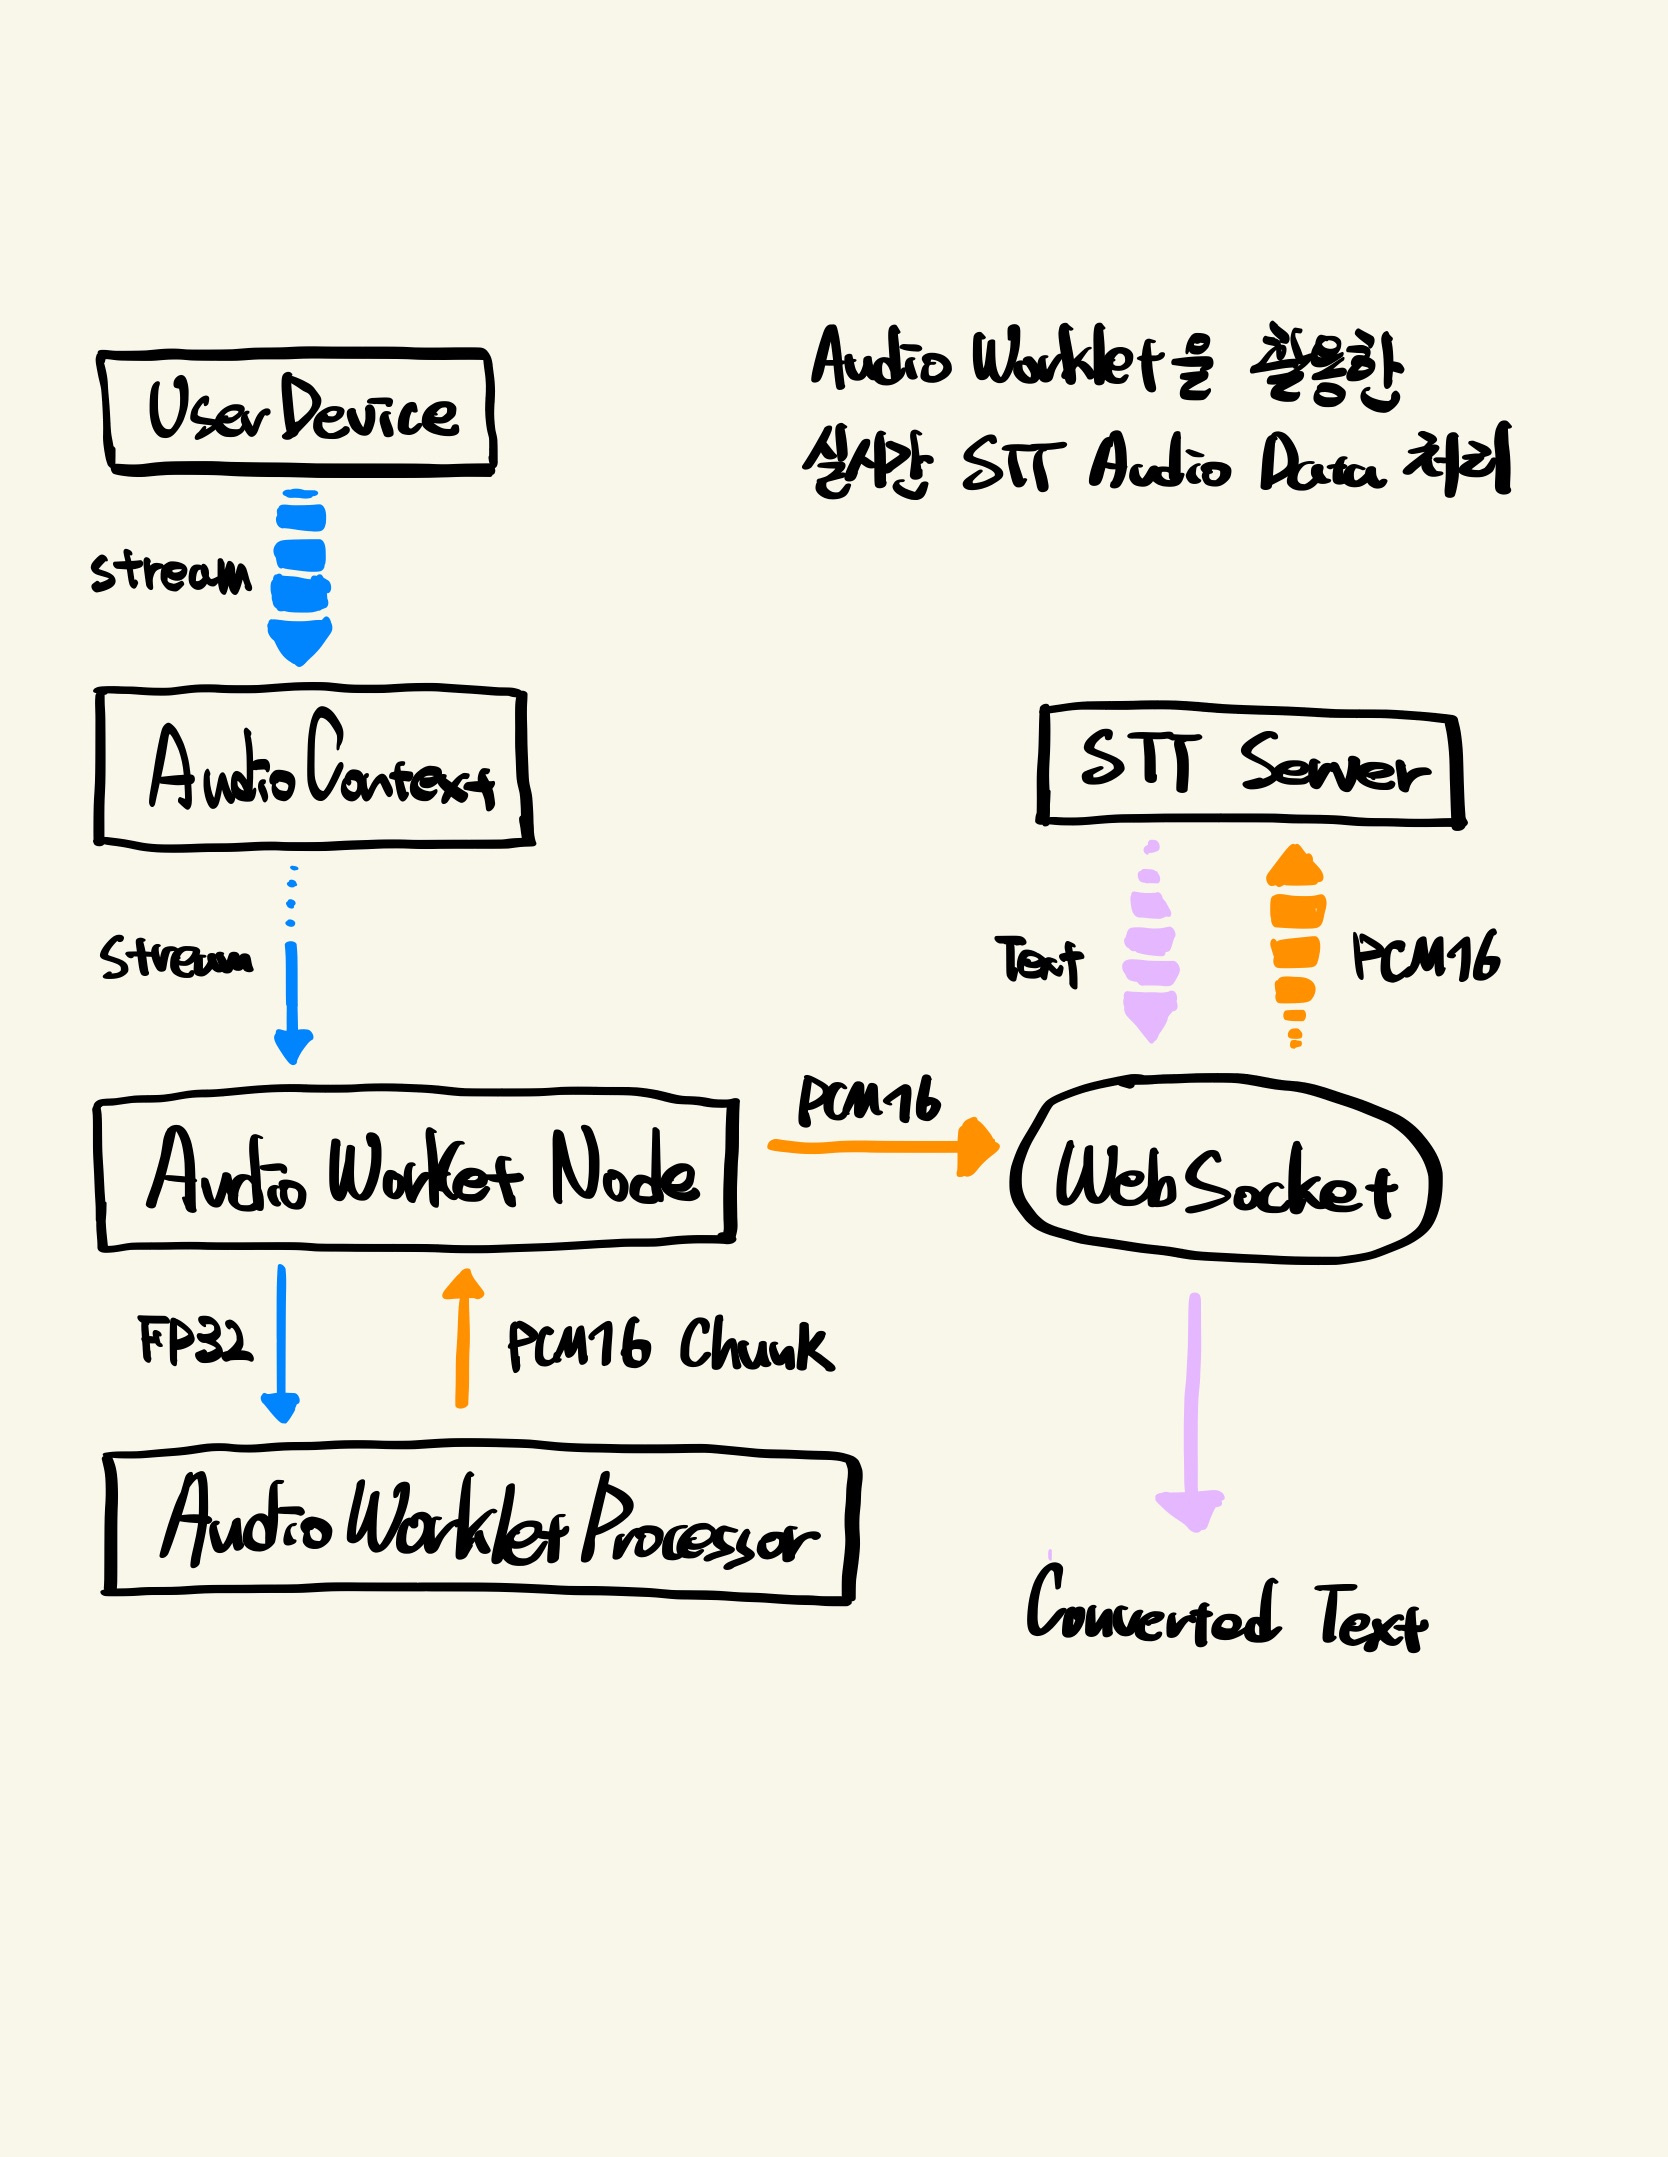 Audio Worklet을 활용한
실시간 STT Audio Data 처리
User Device
stream
Audio Context
Stream
Audio Worket Node
FP32
PCM16 Chunk
Audio Worklet Processor
PCM16
STT Server
Text
PCM16
WebSocket
Converted Text